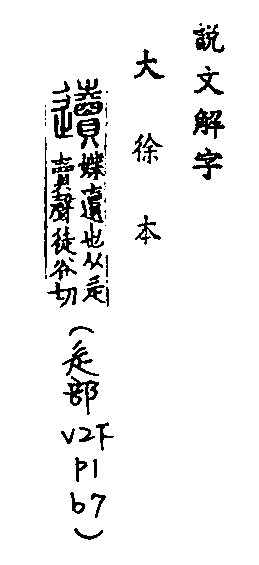 説文解字
大徐本
䢱媟䢱也从辵
賣聲徒谷切
(辵部V2下P1b7)